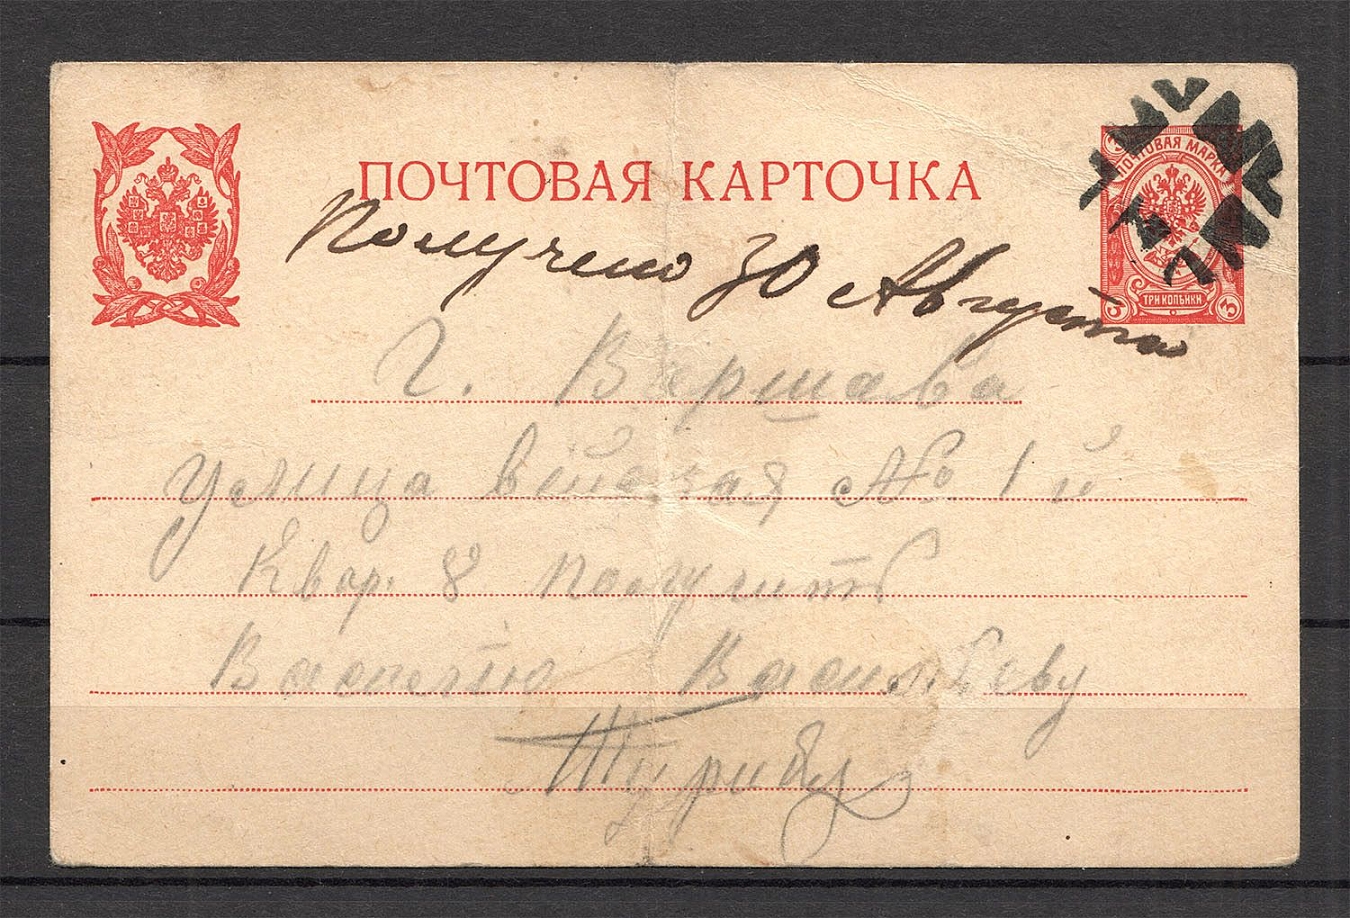 ПОЧТОВАЯ КАРТОЧКА
ПОЧТОВАЯ МАРКА
3
ТРИ КОПѢЙКИ
3 3
Получено 30 Августа
Г. Варшава
Улица № 1 й
Квар. 8 получитъ
Василію Васильеву